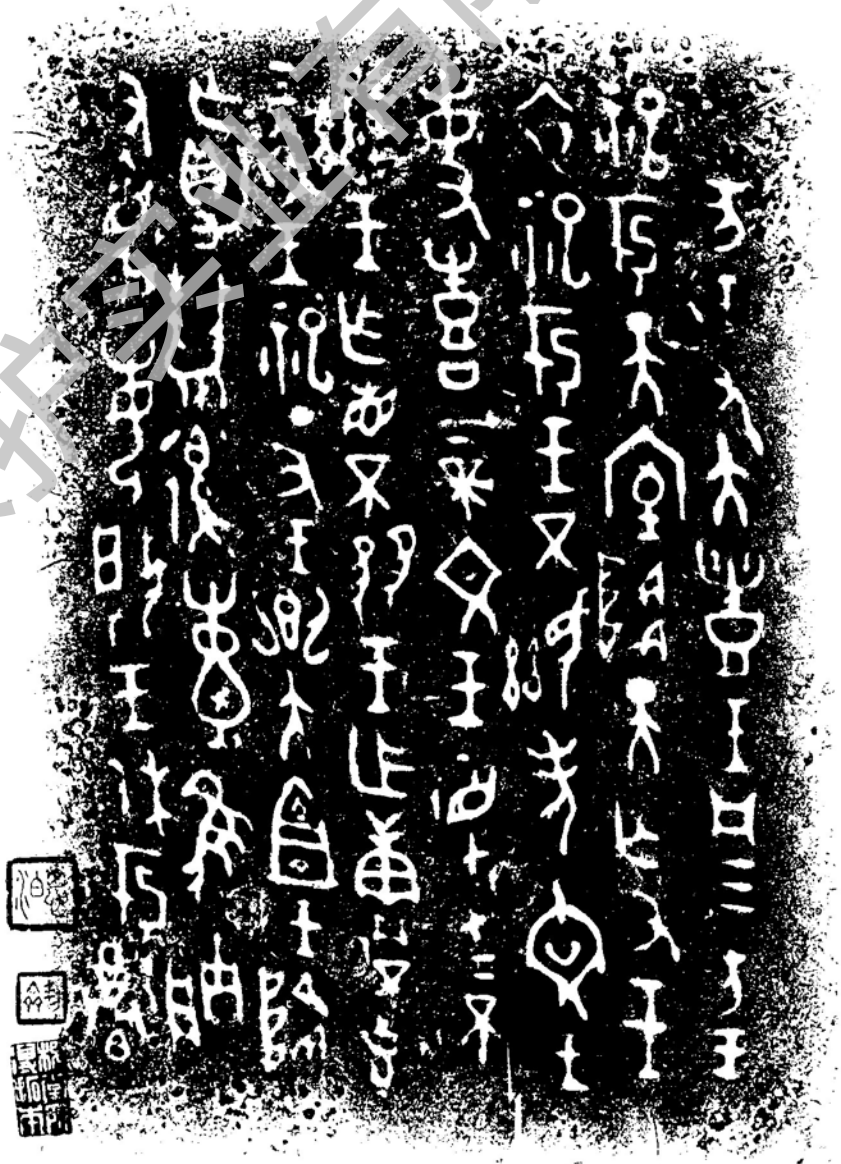 亥王又大豊王凡三方王
祀于天室降天亡又王
衣祀于王不顯考文王
事喜上帝文王監才上不
顯王乍省不𢑚王乍庚不克
三衣王祀丁丑王鄉大宜王降
亡爵復𣝣隹朕
又慶每揚王休于尊
护实业有